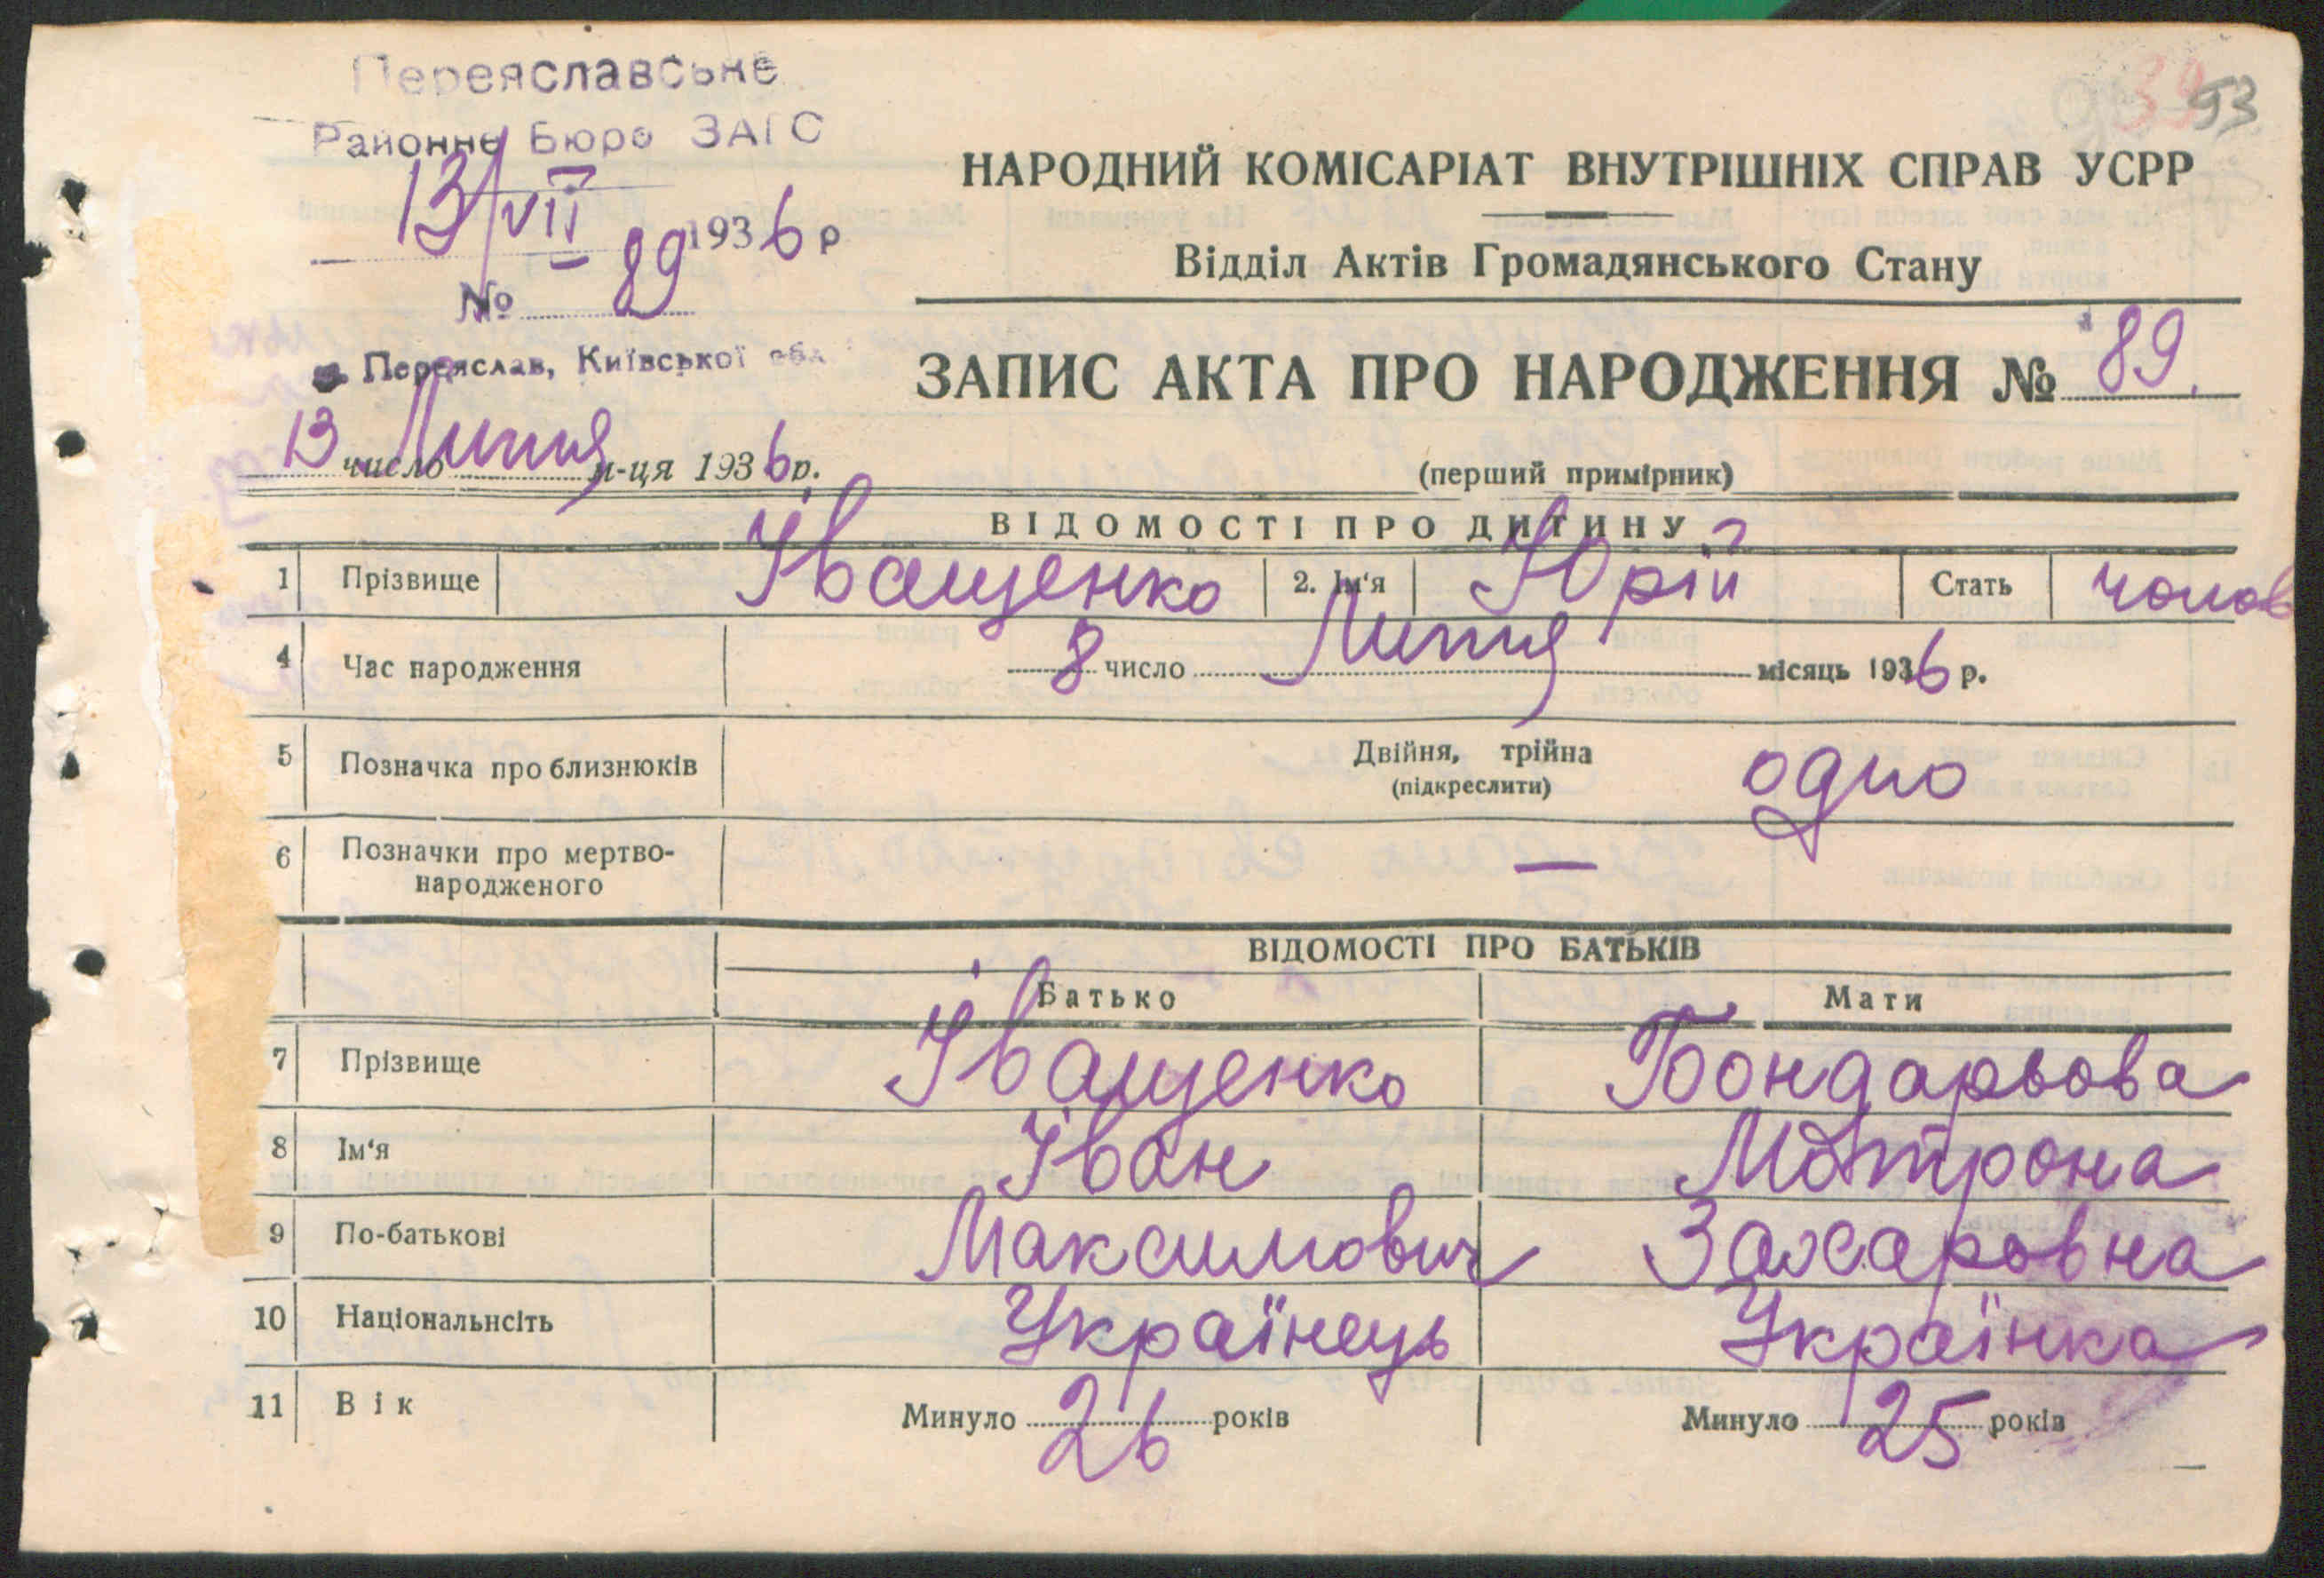 Переяславське
Районне Бюро ЗАГС
13/VII 1936 р
№ 89
м. Переяслав, Київської обл.
39 93
НАРОДНИЙ КОМІСАРІАТ ВНУТРІШНІХ СПРАВ УСРР
Відділ Актів Громадянського Стану
ЗАПИС АКТА ПРО НАРОДЖЕННЯ № 89.
13 число Липня м-ця 1936 р.
(перший примірник)
ВІДОМОСТІ ПРО ДИТИНУ
1 Прізвище Іващенко 2. Ім‘я Юрій Стать чолов
4 Час народження 8 число Липня місяць 1936 р.
5 Позначка про близнюків Двійня, трійна (підкреслити) одно
6 Позначки про мертво-
народженого —
ВІДОМОСТІ ПРО БАТЬКІВ
Батько Мати
7 Прізвище Іващенко Бондарьова
8 Ім‘я Іван Мотрона
9 По-батькові Максимович Захаровна
10 Національнсіть Українець Українка
11 Вік Минуло 26 років Минуло 25 років